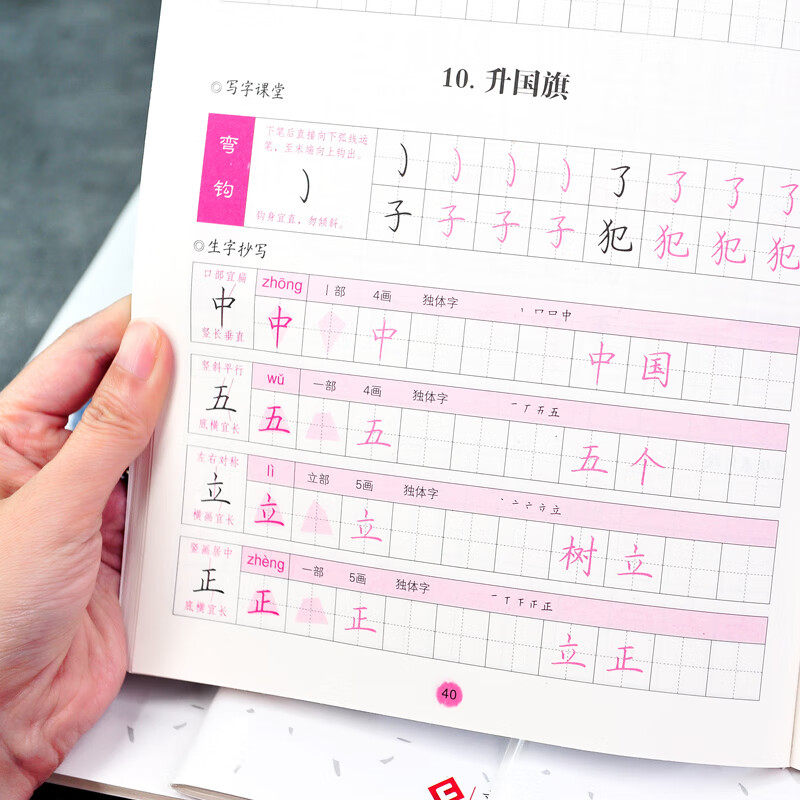 10. 升国旗
◎写字课堂
弯钩
下笔后直接向下弧线运
笔，至末端向上钩出。
钩身宜直，勿倾斜。
了 了 了 了
子 子 子 子 犯 犯 犯 犯
◎生字抄写
口部宜扁
中
竖长垂直
zhōng 丨部 4画 独体字 丶 冖 口 中
中 中 中 国
竖斜平行
五
底横宜长
wǔ 一部 4画 独体字 一 丆 五 五
五 五 五 个
左右对称
立
横画宜长
lì 立部 5画 独体字 丶 亠 立
立 立 树 立
竖画居中
正
底横宜长
zhèng 一部 5画 独体字 一 丅 下 正 正
正 正 立 正
40